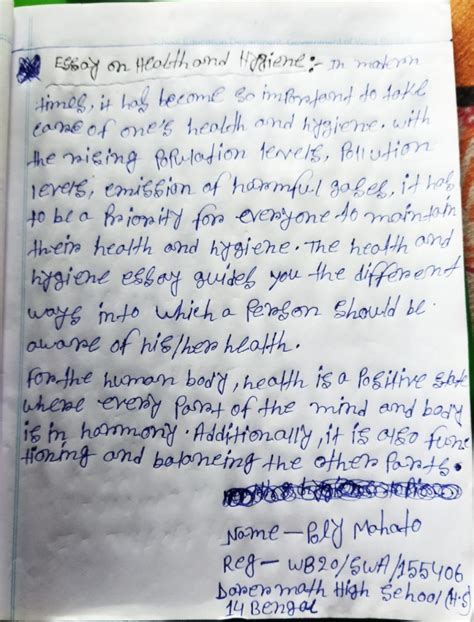 Essay on Health and Hygiene:- In modern
times, it has become so important to take
care of one's health and hygiene. with
the rising Population levels, Pollution
levels, emission of harmful gases, it has
to be a Priority for everyone to maintain
their health and hygiene. The health and
hygiene essay guides you the different
ways into which a Person should be
aware of his/her health.
For the human body, health is a Positive state
where every Part of the mind and body
is in harmony. Additionally, it is also func
tioning and balancing the other Parts.
Name - Mahato
Reg - WB20/SWA/155406
High School (H.S)
14 Bengal